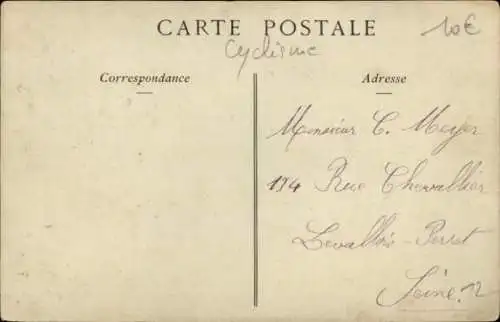 CARTE POSTALE
10€
Cyclisme
Correspondance
Adresse
Monsieur C. Meyer
194 Rue Chevallier
Levallois-Perret
Seine.